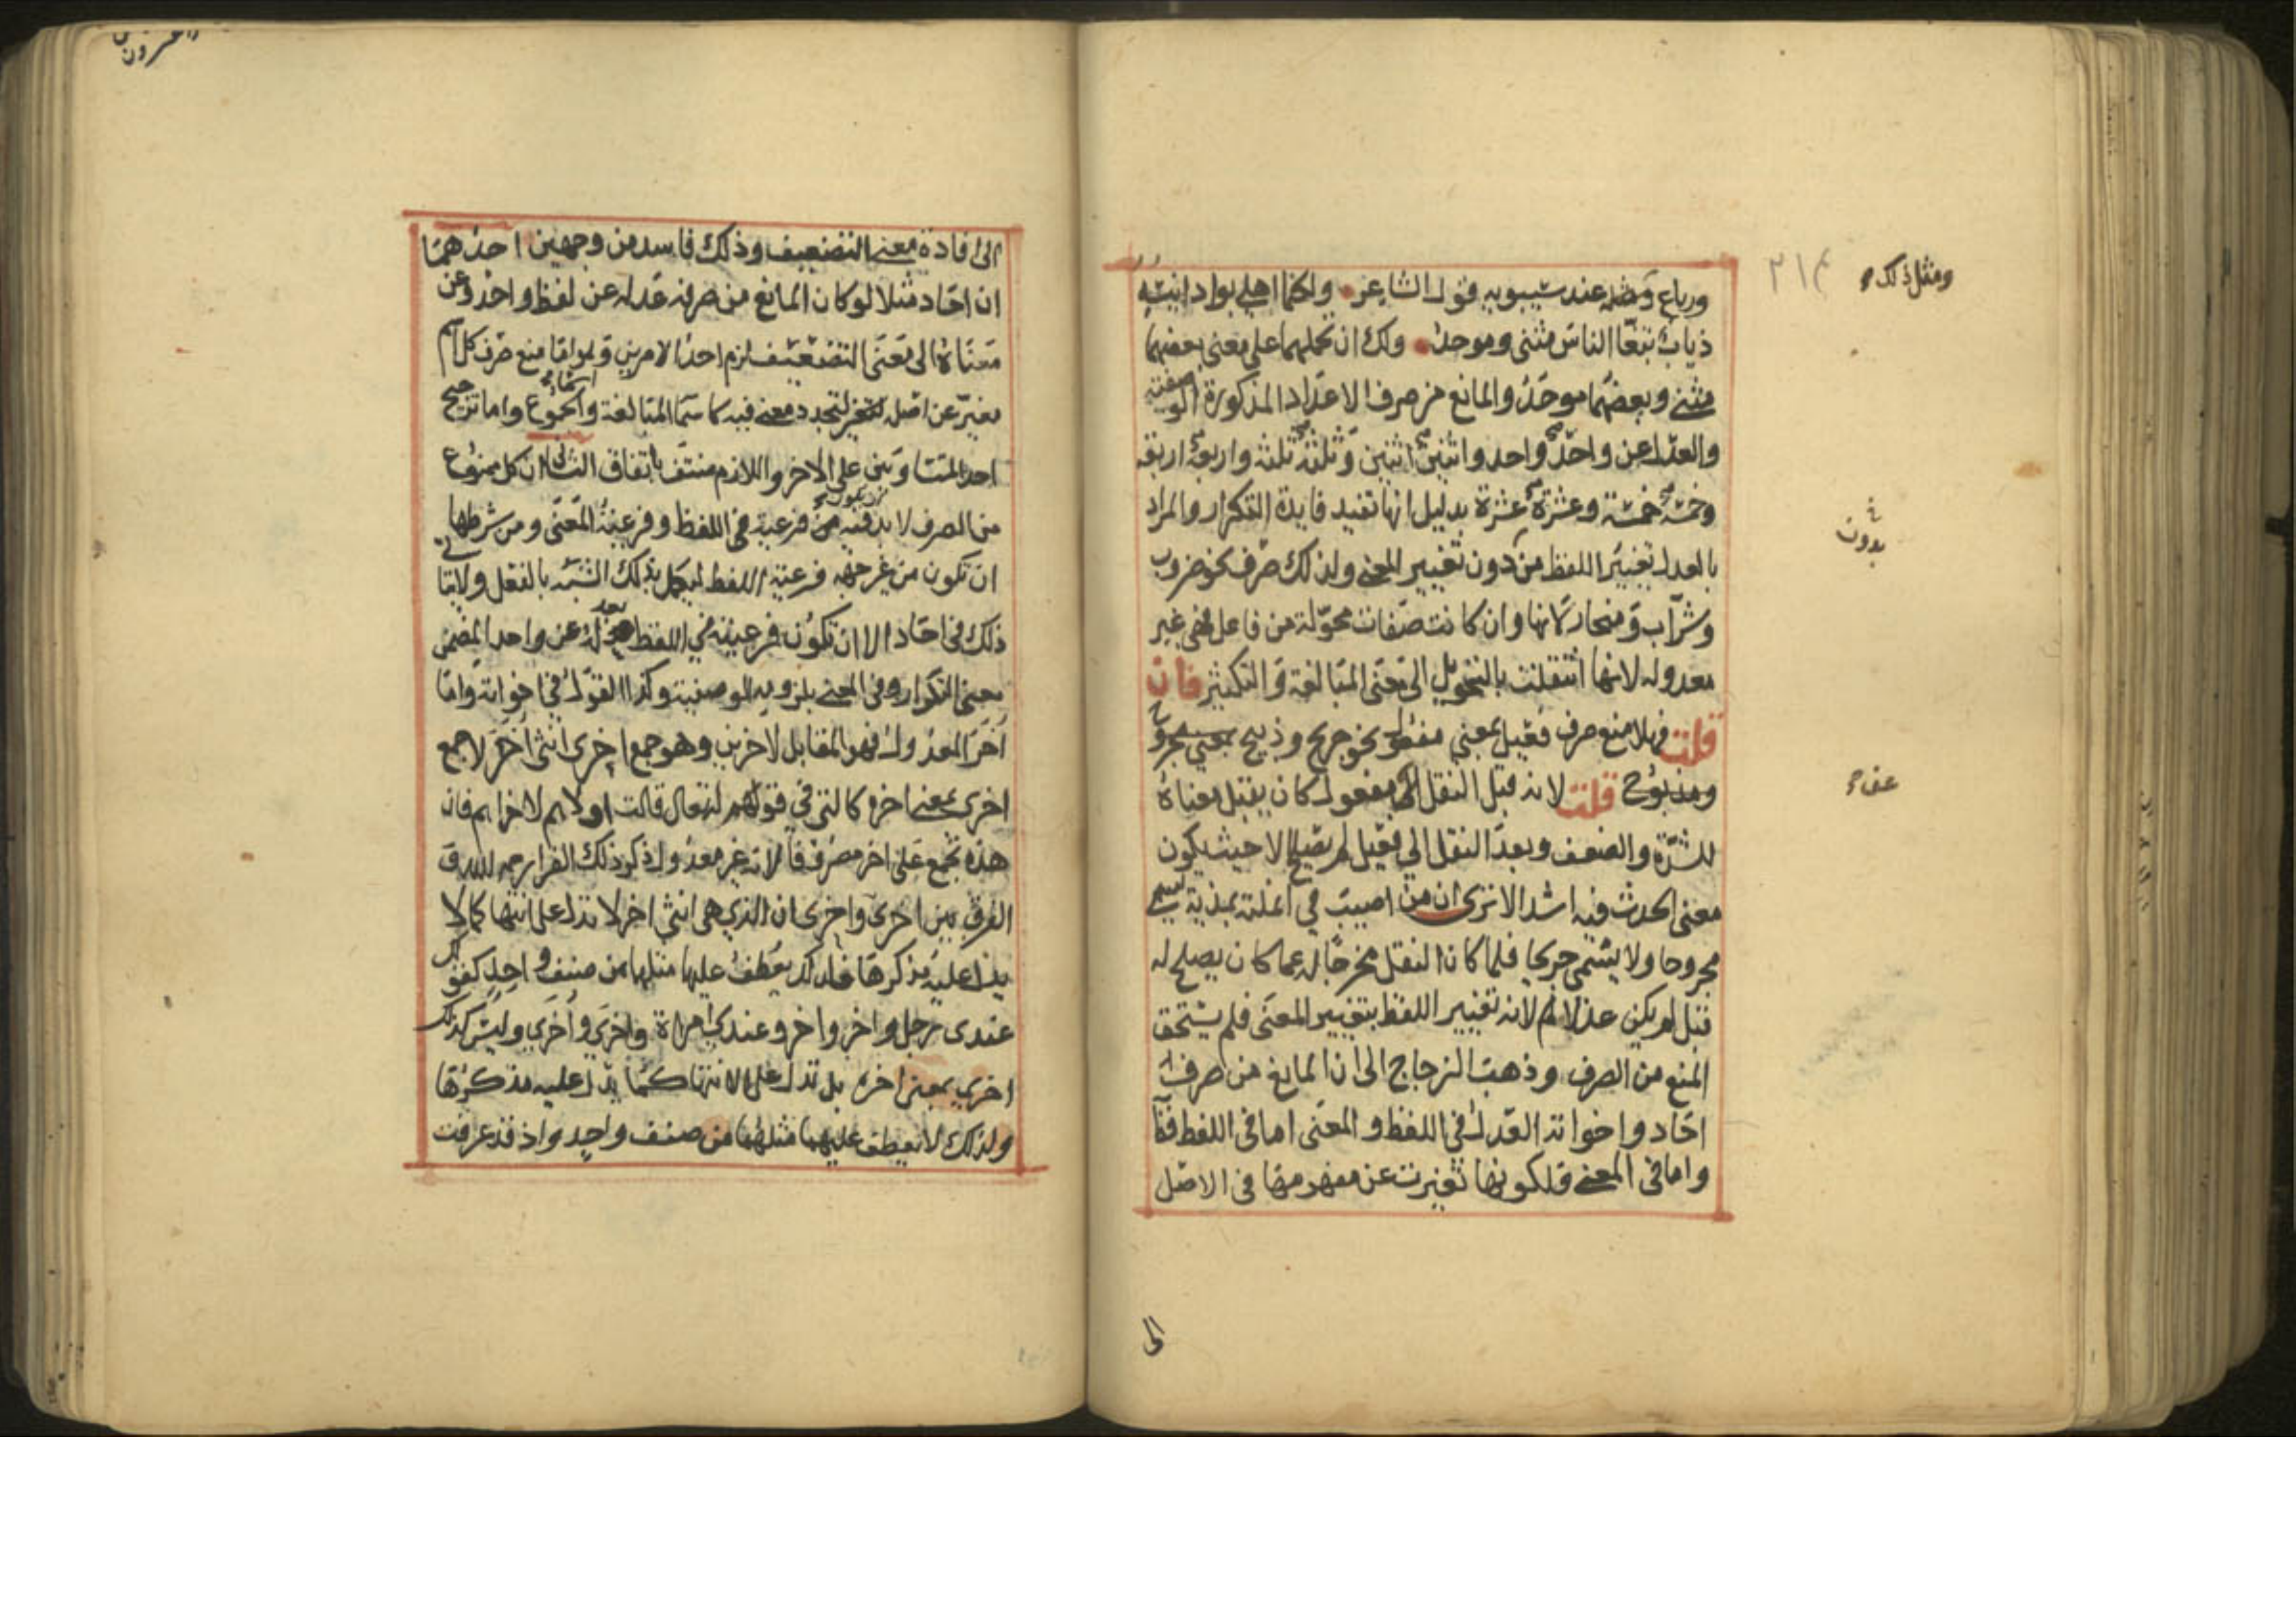 ورباع ومثله عند سيبويه قول الشاعر ولكنما اهلي بواد انيسه
ذياب تبغا الناس مثنى وموحد ولك ان تحملهما على معنى بعضهما
مثنى وبعضهما موحد والمانع من صرف الاعداد المذكورة الوصفية
والعدل عن واحد واحد واثنين اثنين وثلثة ثلثة واربعة اربعة
وخمسة خمسة وعشرة عشرة بدليل انها تفيد فايدة التكرار والمراد
بالعدل تغيير اللفظ من دون تغيير المعنى ولذلك صرف نحو ضروب
وشراب ومنحار لانها وان كانت صفات محولة من فاعل فهي غير
معدوله لانها انتقلت بالتحويل الى معنى المبالغة والتكثير فان
قلت فهلا منع صرف فعيل بمعنى مفعول نحو جريح وذبيح بمعنى مجروح
ومذبوح قلت لانه قبل النقل الى مفعول كان يقبل معناه
للشدة والضعف وبعد النقل الى فعيل لم يصلح الا حيث يكون
معنى الحدث فيه اشد الا ترى ان من اصيب في انملته بمدية يسمى
مجروحا ولا يسمى جريحا فلما كان النقل مخرجا له عما كان يصلح له
قبل لم يكن عدلا لانه تغيير اللفظ بتغيير المعنى فلم يستحق
المنع من الصرف وذهب الزجاج الى ان المانع من صرف
احاد واخواته العدل في اللفظ والمعنى اما في اللفظ
واما في المعنى فلكونها تغيرت عن مفهومها في الاصل
الى
ومثل ذلك
٢١٤
بدون
الى افادة معنى التضعيف وذلك فاسد من وجهين احدهما
ان احاد مثلا لو كان المانع من صرفه عدله عن لفظ واحد وعن
معناه الى معنى التضعيف لزم احد الامرين وهو اما منع صرف كل اسم
يغير عن اصل لتجدد معنى فيه كاسما المبالغة واسماء الجموع واما ترجيح
احد المتساويين على الاخر واللازم منتف باتفاق الثاني ان كل ممنوع
من الصرف لا بد فيه من فرعية في اللفظ وفرعية المعنى ومن شرطها
ان تكون من غير جهة فرعية اللفظ ليكمل بذلك الشبه بالفعل ولا يتاتى
ذلك في احاد الا ان تكون فرعيته في اللفظ بعدله عن واحد المضمن
معنى التكرار وفي المعنى بلزومه الوصفية وكذا القول في اخواته واما
اخر المعدول فهو المقابل لاخرين وهو جمع اخرى انثى اخر لا جمع
اخرى بمعنى اخره كالتي في قوله تعالى قالت اولاهم لاخراهم فان
هذه تجمع على اخر مصروفا لانه غير معدول ذكر ذلك الفرا رحمه الله
الفرق بين اخرى واخرى ان الذي هي انثى اخر لا تدل على انتها كما لا
يدل عليه مذكرها فلذلك يعطف عليها مثلها من صنف واحد كقولك
عندى رجل واخر واخر وعندي امراة واخرى واخرى وليس كذلك
اخرى بمعنى اخره بل تدل على الانتها كما يدل عليه مذكرها
ولذلك لا يعطف عليهما مثلهما من صنف واحد واذ قد عرفت